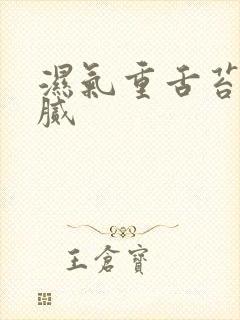 濕氣重舌苔
膩
王倉寶